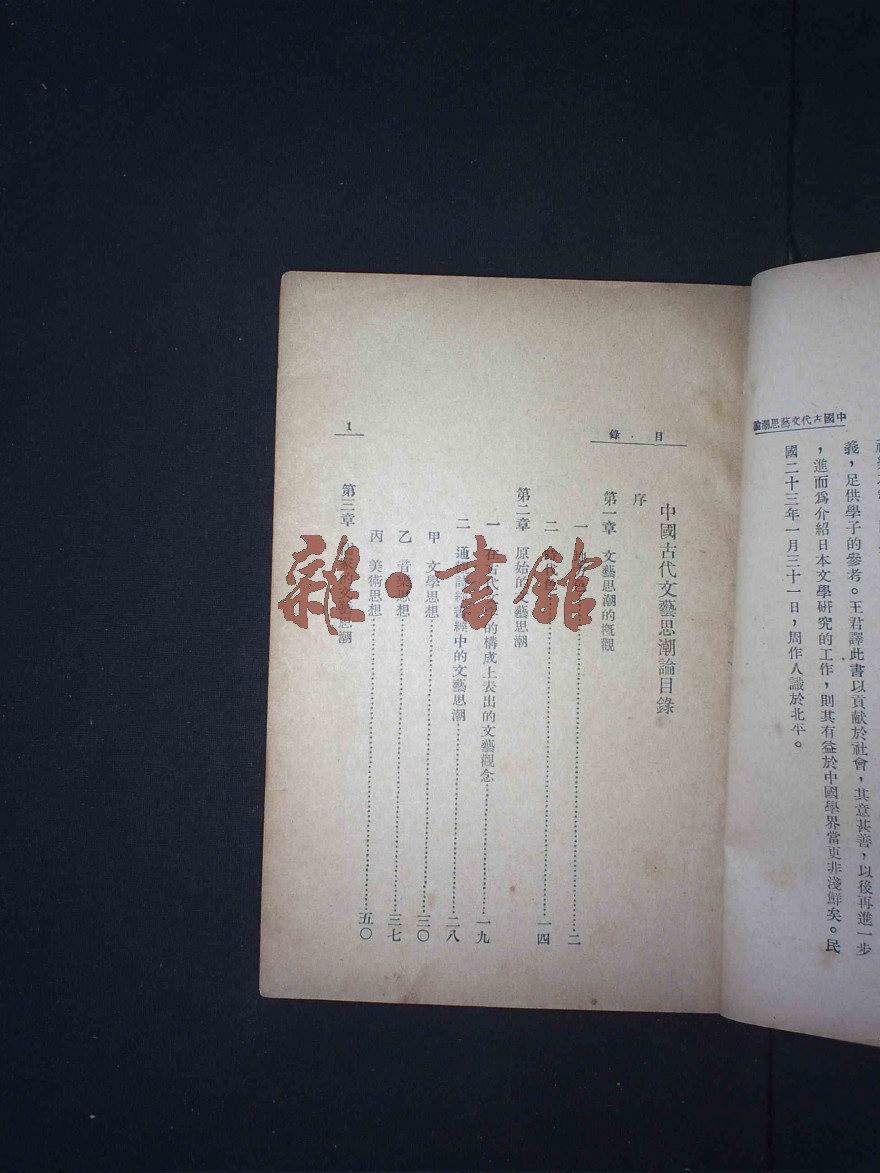 中國古代文藝思潮論
義，足供學子的參考。王君譯此書以貢献於社會，其意甚善，以後再進一步
，進而爲介紹日本文學硏究的工作，則其有益於中國學界當更非淺鮮矣。民
國二十三年一月三十一日，周作人識於北平。
目錄
中國古代文藝思潮論目錄
序
第一章 文藝思潮的槪觀
一 二
二 時代色 一四
第二章 原始的文藝思潮
一 在古代 的構成上表出的文藝觀念 一九
二 通 中的文藝思潮 二八
甲 文學思想 三〇
乙 音樂思想 三七
丙 美術思想 五〇
第三章 思潮
1
雜·書館